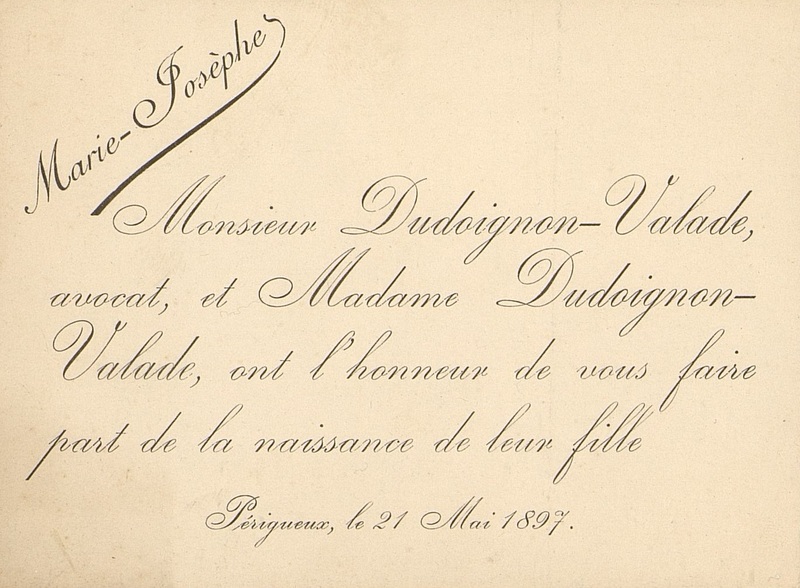 Marie-Josèphe
Monsieur Dudoignon-Valade,
avocat, et Madame Dudoignon-
Valade, ont l'honneur de vous faire
part de la naissance de leur fille
Périgueux, le 21 Mai 1897.